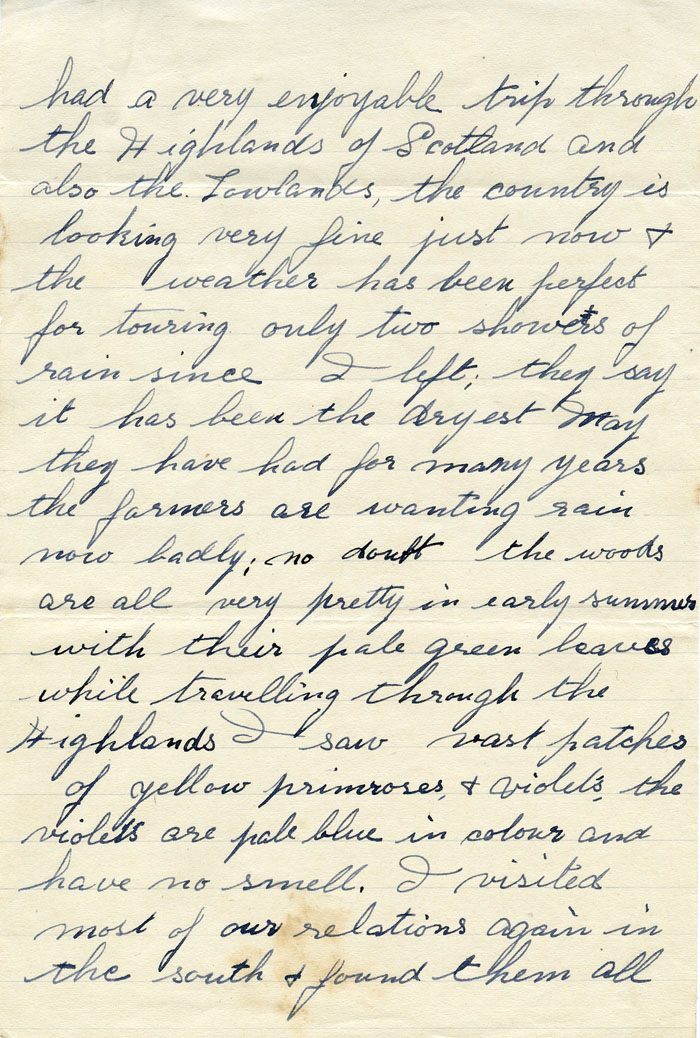 had a very enjoyable trip through
the Highlands of Scotland and
also the Lowlands, the country is
looking very fine just now &
the weather has been perfect
for touring only two showers of
rain since I left; they say
it has been the dryest May
they have had for many years
the farmers are wanting rain
now badly; no doubt the woods
are all very pretty in early summer
with their pale green leaves
while travelling through the
Highlands I saw vast patches
of yellow primroses, & violets, the
violets are pale blue in colour and
have no smell. I visited
most of our relations again in
the south & found them all